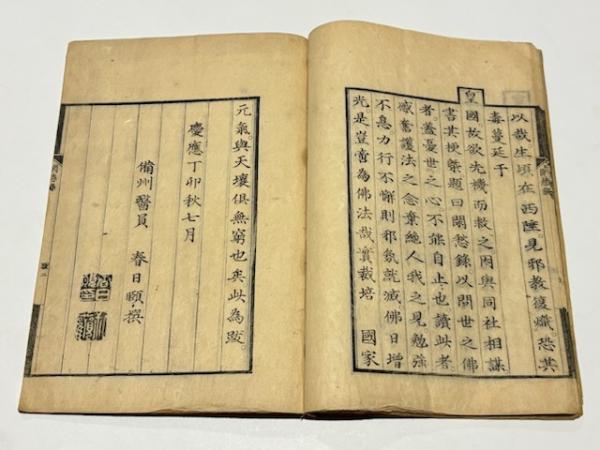 以哉生頃在西陲見邪教復熾恐其
毒蔓延于
皇國故欲先機而救之因與同社相謀
書其梗槩題曰闢愁錄以問世之佛
者蓋憂世之心不能自止也讀此者
感奮護法之念棄絶人我之見勉強
不息力行不懈則邪氛就滅佛日增
光是豈啻為佛法哉實裁培 國家
元氣與天壤俱無窮也矣此為跋
慶應丁卯秋七月
備州醫員 春日頤撰